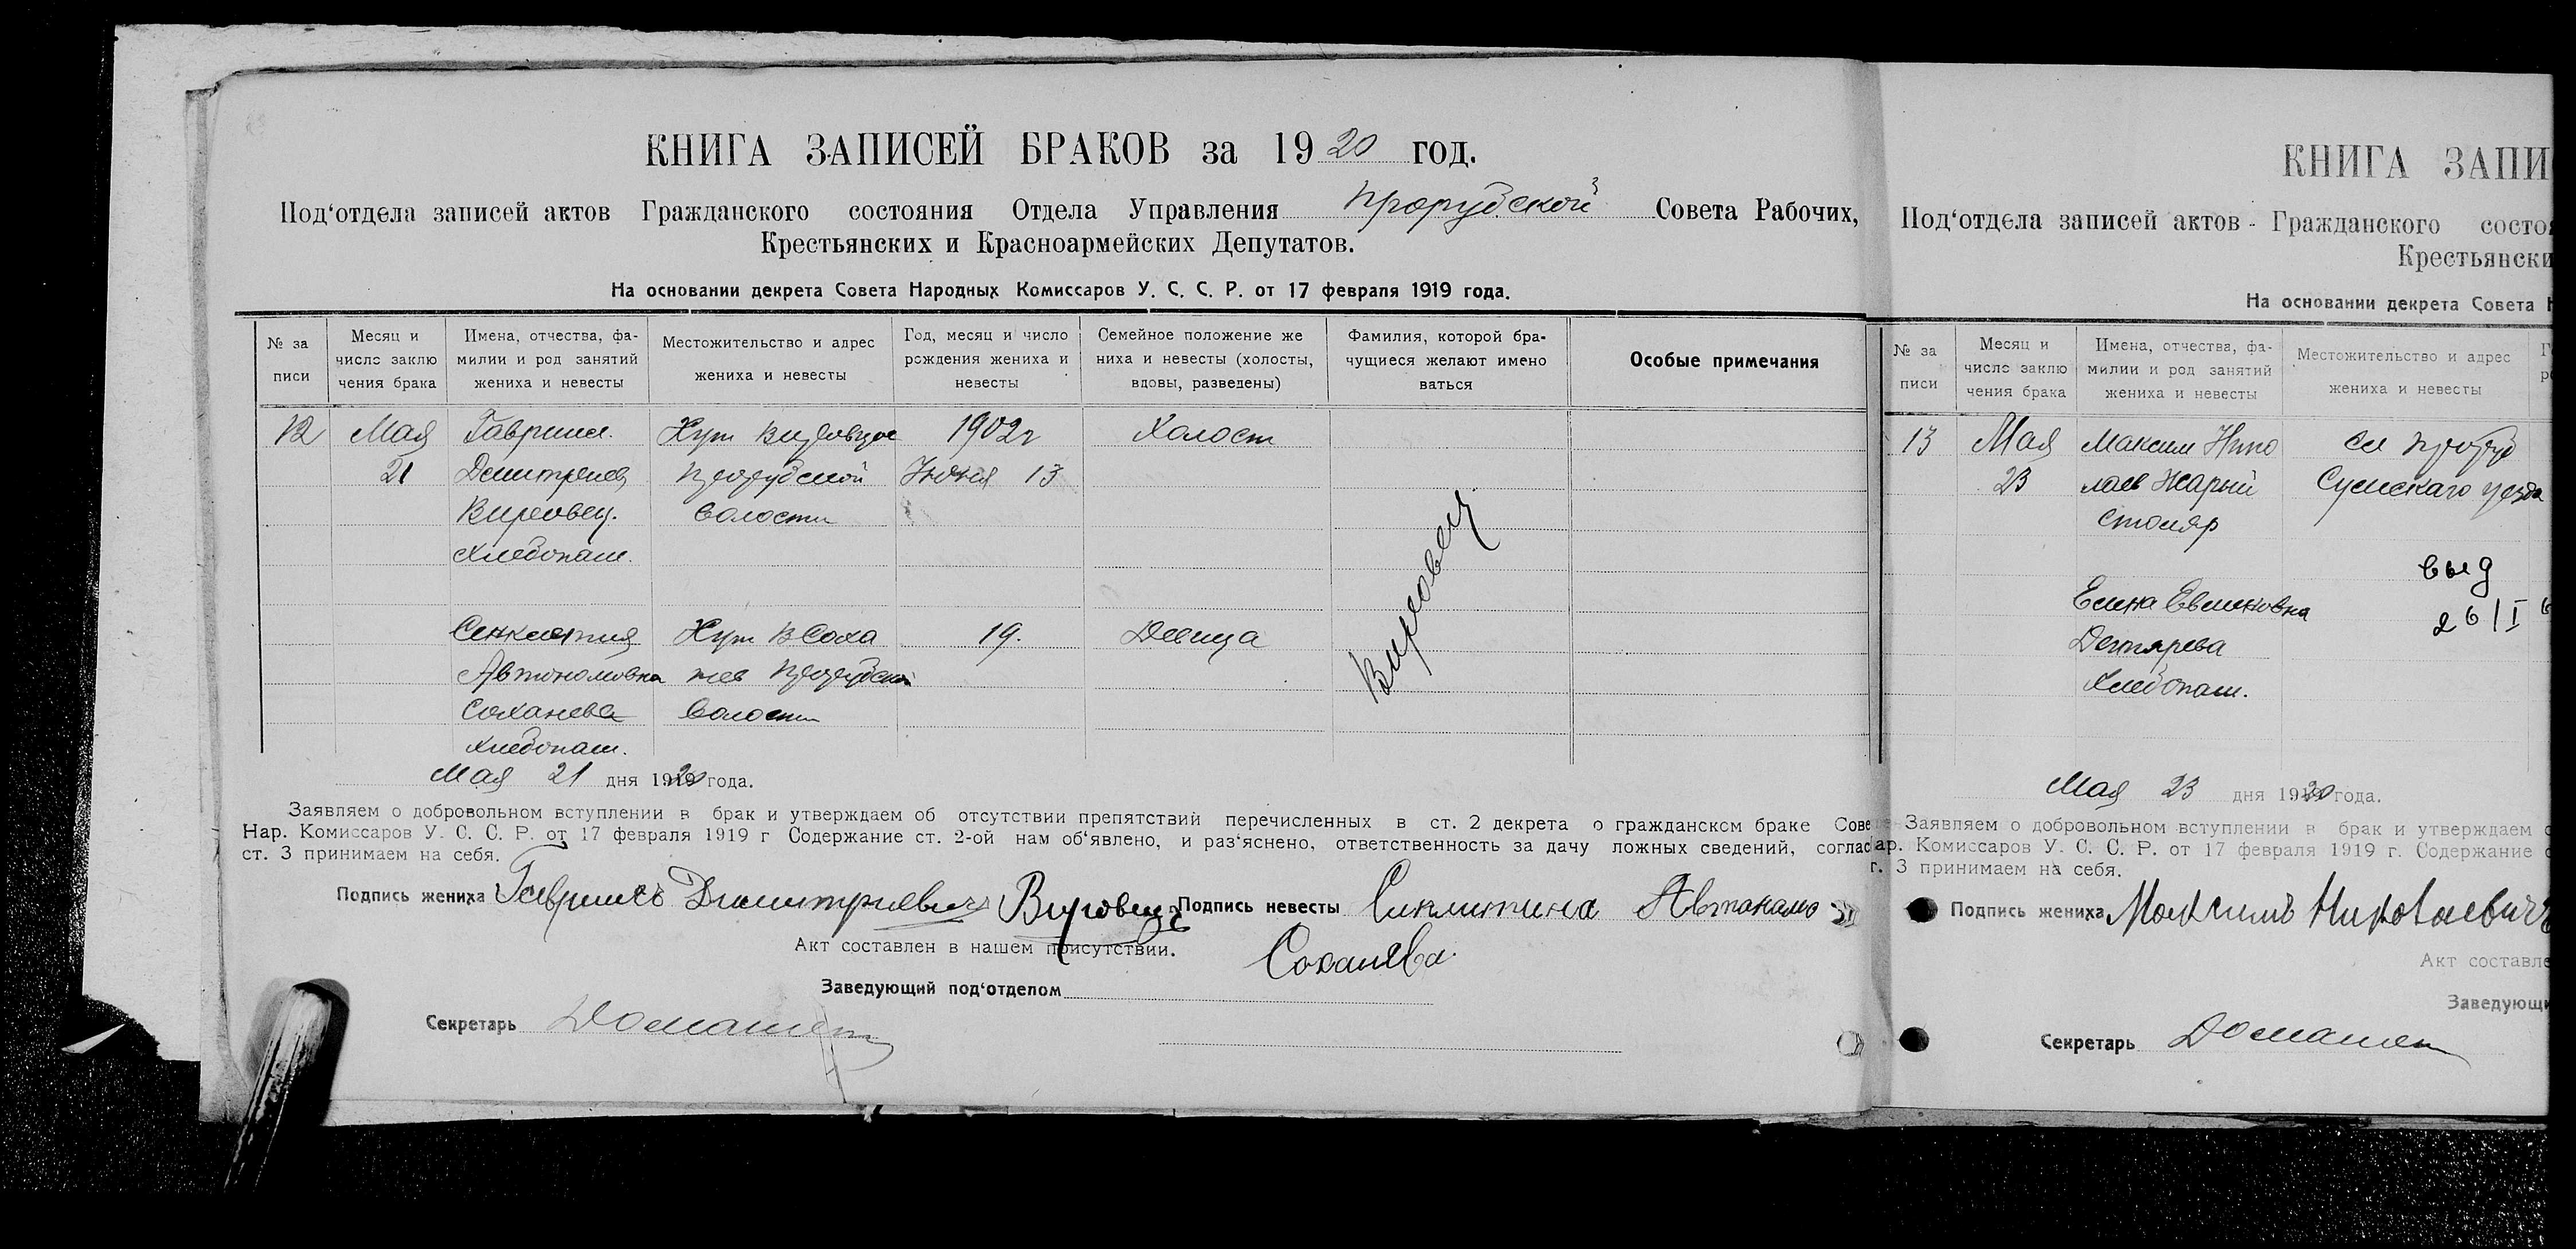 КНИГА ЗАПИСЕЙ БРАКОВ за 1920 год.
Под‘отдела записей актов Гражданского состояния Отдела Управления Прорубской Совета Рабочих,
Крестьянских и Красноармейских Депутатов.
На основании декрета Совета Народных Комиссаров У. С. С. Р. от 17 февраля 1919 года.
№ за
писи
Месяц и
число заклю
чения брака
Имена, отчества, фа-
милии и род занятий
жениха и невесты
Местожительство и адрес
жениха и невесты
Год, месяц и число
рождения жениха и
невесты
Семейное положение же
ниха и невесты (холосты,
вдовы, разведены)
Фамилия, которой бра-
чущиеся желают имено
ваться
Особые примечания
12
Мая
21
Гавриил.
Дмитриев
Вировец.
Хлебопаш.
Хут
Прорубской
волости
1902г
Июня 13
Холост
Вировец
Автономовна
Соханева
Хлебопаш.
Хут В Соха
нев Прорубской
волости
19.
Девица
Мая 21 дня 1920 года.
Заявляем о добровольном вступлении в брак и утверждаем об отсутствии препятствий перечисленных в ст. 2 декрета о гражданском браке Сове
Нар. Комиссаров У. С. С. Р. от 17 февраля 1919 г Содержание ст. 2-ой нам об‘явлено, и раз‘яснено, ответственность за дачу ложных сведений, соглас
ст. 3 принимаем на себя.
Подпись жениха Гавриилъ Димитриевичъ Вировецъ Подпись невесты Автанамо
Соханева.
Акт составлен в нашем присутствии.
Заведующий под‘отделом
Секретарь
КНИГА ЗАПИ
Под‘отдела записей актов - Гражданского состо
Крестьянски
На основании декрета Совета Н
№ за
писи
Месяц и
число заклю
чения брака
Имена, отчества, фа-
милии и род занятий
жениха и невесты
Местожительство и адрес
жениха и невесты
13
Мая
23
Максим Нико
лаев Жарый
Столяр
Сумскаго уезда
выд
26/I
Елена
Дегтярева
Хлебопаш.
Мая 23 дня 1920 года.
Заявляем о добровольном вступлении в брак и утверждаем
ар. Комиссаров У. С. С. Р. от 17 февраля 1919 г. Содержание
г. 3 принимаем на себя.
Подпись жениха Максимъ Николаевичъ
Акт составле
Заведующи
Секретарь